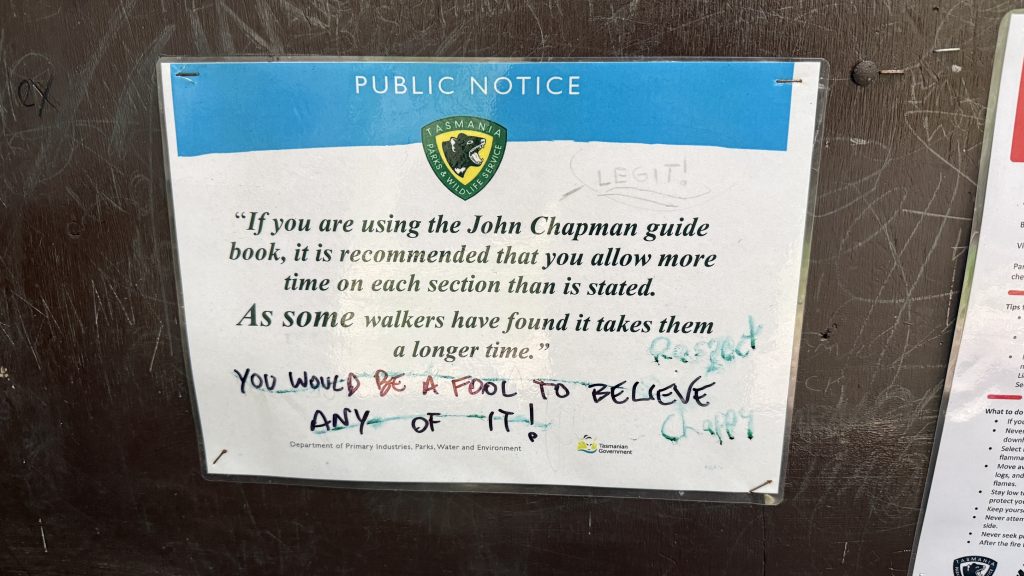 ex
PUBLIC NOTICE
TASMANIA
PARKS & WILDLIFE SERVICE
LEGIT!
“If you are using the John Chapman guide
book, it is recommended that you allow more
time on each section than is stated.
As some walkers have found it takes them
a longer time.”
Respect
YOU WOULD BE A FOOL TO BELIEVE
ANY OF IT!
Chappy
Department of Primary Industries, Parks, Water and Environment
Tasmanian
Government
Tips
What to do
If you
Never
down
Select
flamma
Move aw
logs, and
flames.
Stay low t
protect you
Keep yourse
Never attem
side.
Never seek p
After the fire
TASMANIA